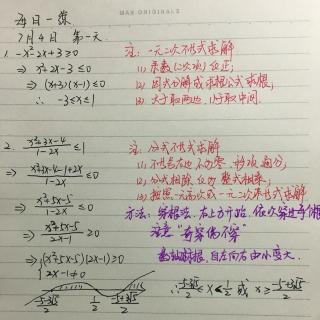 MAX ORIGINALS
每日一练
7月4日 第一天
1. -x²-2x+3≥0
⇒ x²+2x-3≤0
⇒ (x+3)(x-1)≤0
∴ -3≤x≤1
注: 一元二次不等式求解
(1) 系数(二次项)化正;
(2) 因式分解或求根公式求根;
(3) 大于取两边, 小于取中间.
2. x²+3x-4/1-2x ≤1
⇒ x²+3x-4-1+2x/1-2x ≤0
⇒ x²+5x-5/1-2x ≤0
⇒ x²+5x-5/2x-1 ≥0
⇒ {(x²+5x-5)(2x-1)≥0
2x-1≠0
注: 分式不等式求解
(1) 不等式右边不为零, 移项通分;
(2) 分式相除化为整式相乘;
(3) 按照一元高次或一元二次不等式求解
方法: 穿根法. 右上方开始, 依次穿过每个根
注意 "奇穿偶不穿"
自左向右由小变大.
-5-3√5/2 1/2 -5+3√5/2
∴ -5-3√5/2 ≤x<1/2 或 x≥ -5+3√5/2